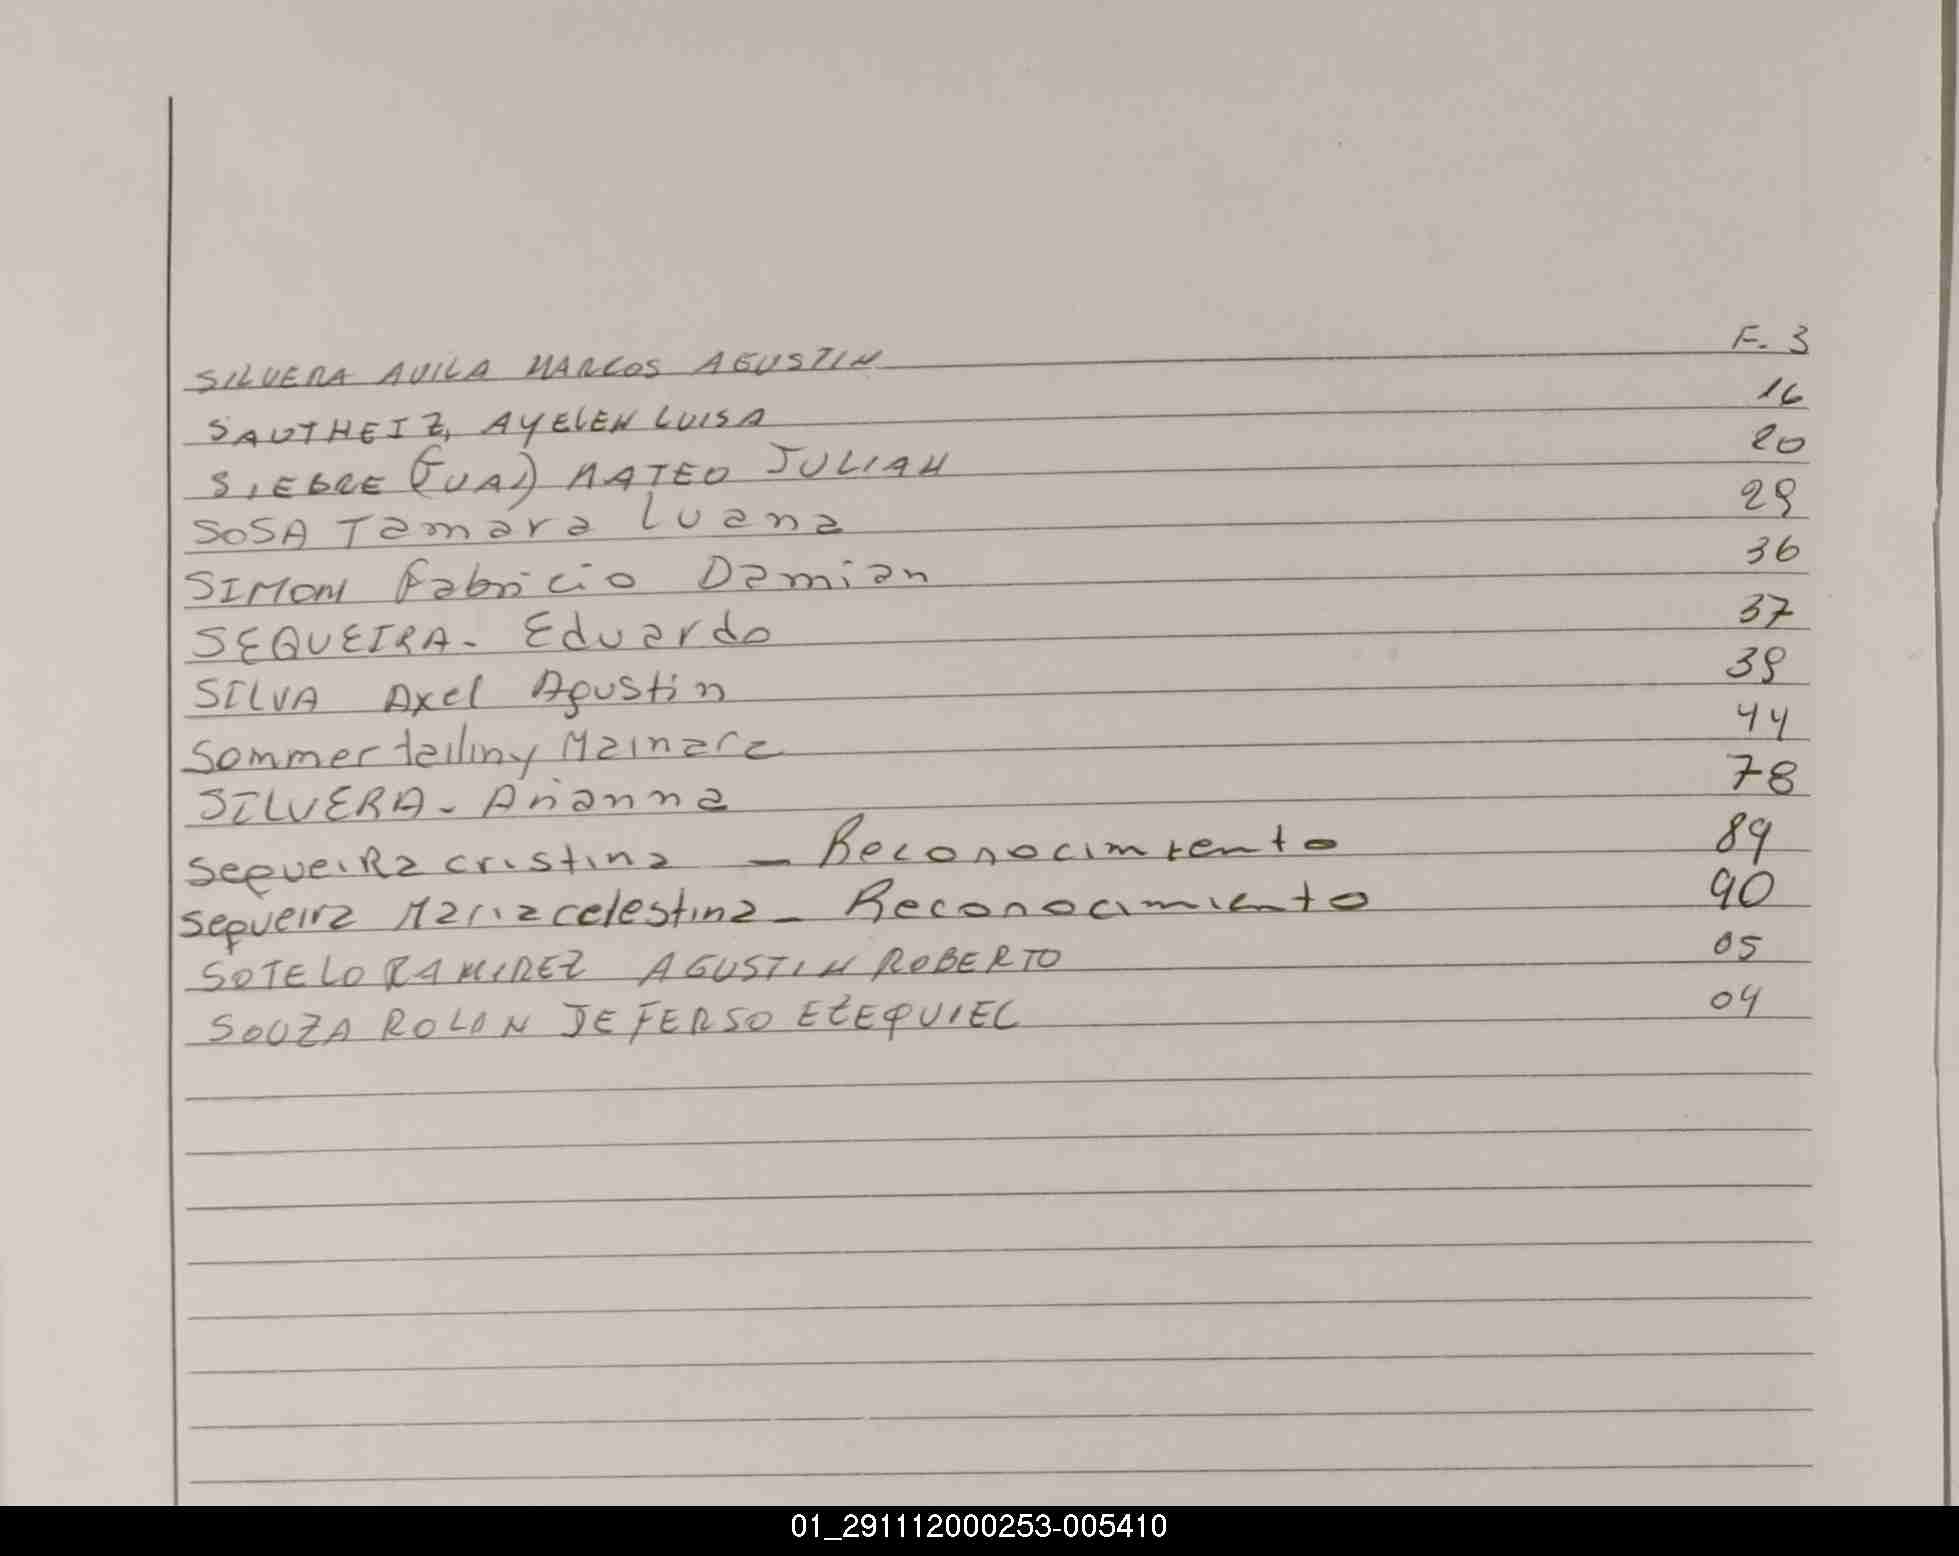 SILVERA AVILA MARCOS AGUSTIN F. 3
SAUTHEIZ, AYELEN LUISA 16
SIEBRE MATEO JULIAN 20
SOSA Tamara Luana 29
SIMON Fabricio Damian 36
SEQUEIRA - Eduardo 37
SILVA Axel Agustin 39
Sommer tailiny Mainara 44
SILVERA - Arianna 78
Sequeira cristina - Reconocimiento 89
Sequeira Maria celestina - Reconocimiento 90
SOTELO RAMIREZ AGUSTIN ROBERTO 05
SOUZA ROLON JEFERSO EZEQUIEL 04
01_291112000253-005410